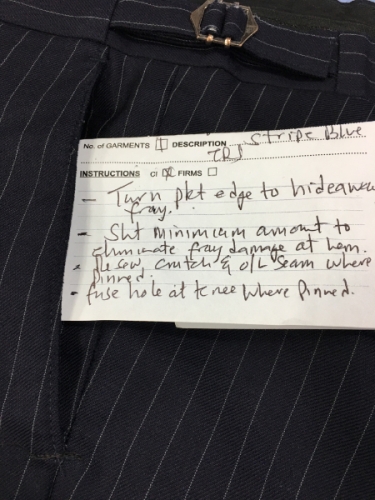 No. of GARMENTS 1 DESCRIPTION Stripe Blue
TRS
INSTRUCTIONS CI FIRMS
- Turn pkt edge to hideaway
fray.
- Sht minimium amount to
eliminate fray damage at hem.
- Resew crutch & o/L seam where
pinned.
- fuse hole at knee where pinned.